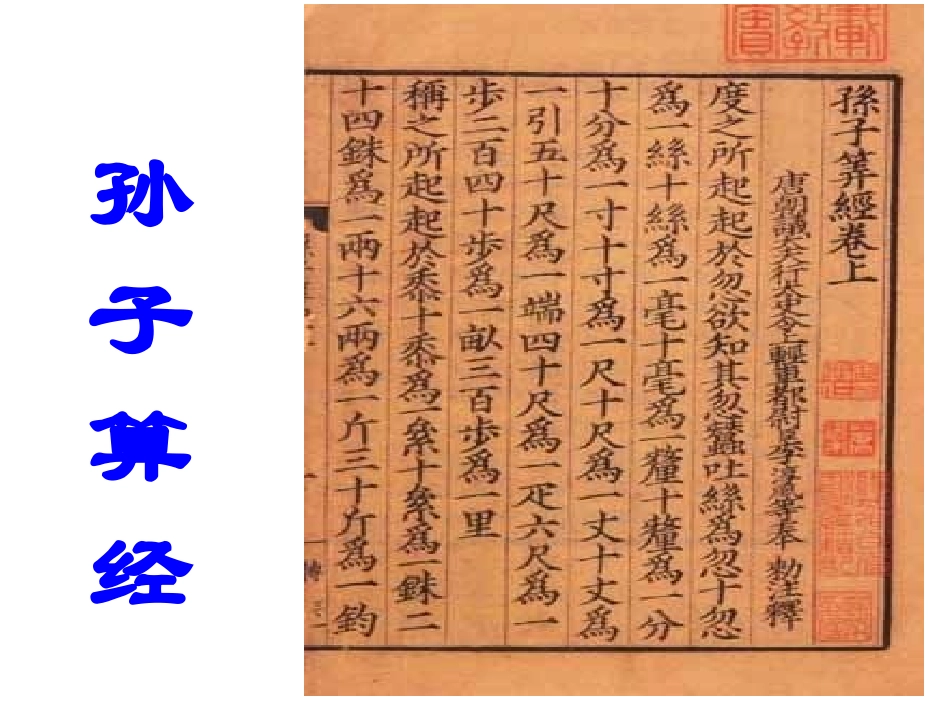 孙子算经
孫子筭經卷上
唐朝議大夫行太史令上輕車都尉臣李淳風等奉 勑注釋
度之所起起於忽欲知其忽蠶吐絲爲忽十忽
爲一絲十絲爲一毫十毫爲一釐十釐爲一分
十分爲一寸十寸爲一尺十尺爲一丈十丈爲
一引五十尺爲一端四十尺爲一疋六尺爲一
步二百四十步爲一畝三百步爲一里
稱之所起起於黍十黍爲一絫十絫爲一銖二
十四銖爲一兩十六兩爲一斤三十斤爲一鈞